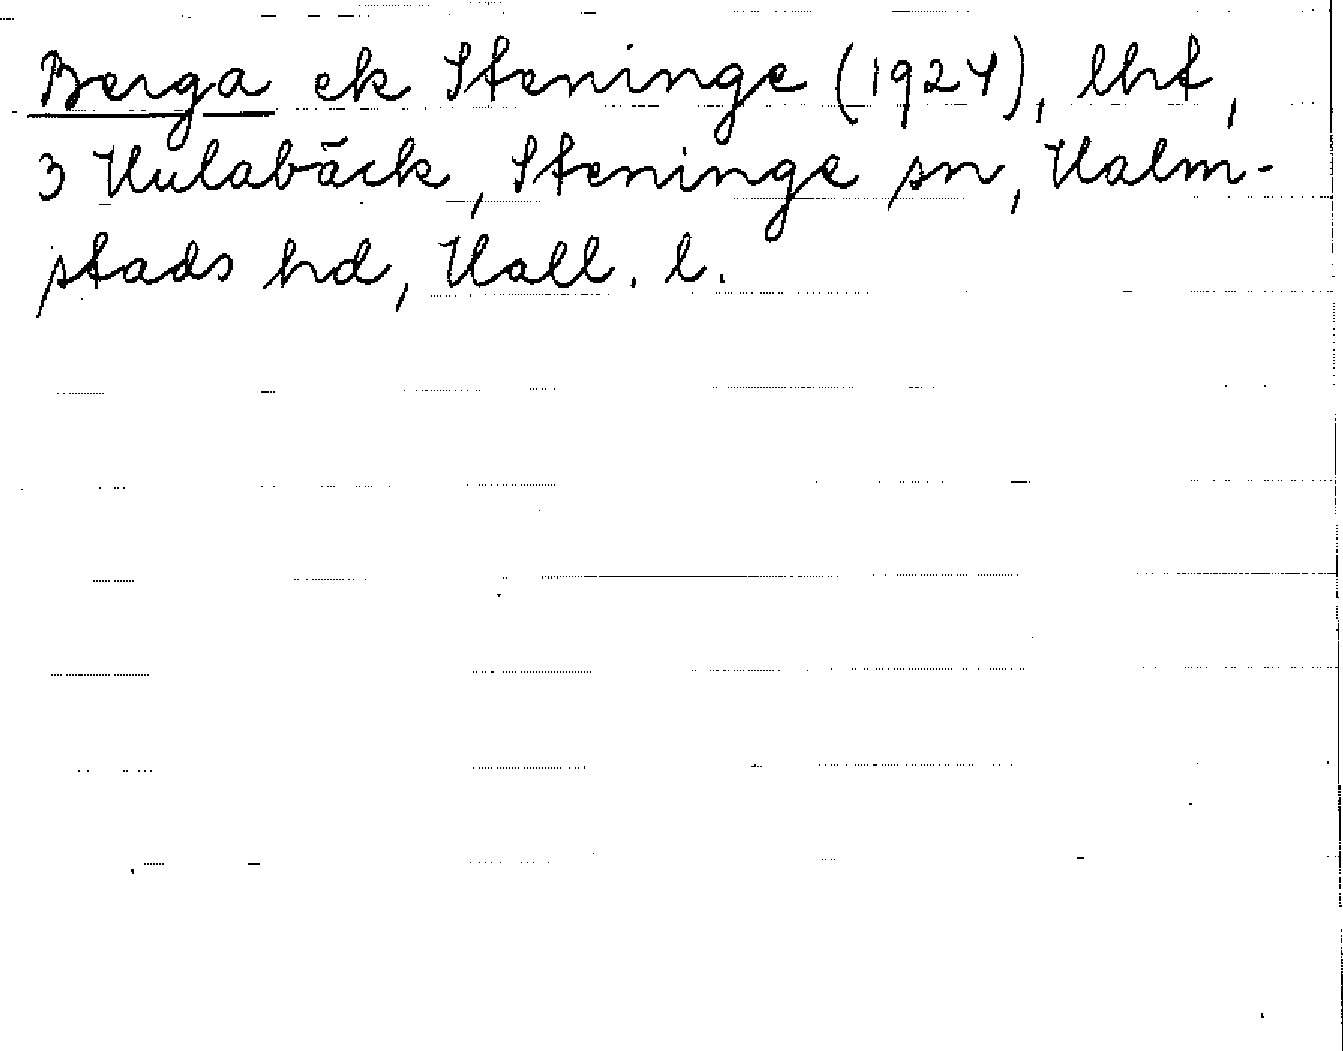 Berga ek Steninge (1924), lht,
3 Hulabäck, Steninge sn, Halm-
stads hd, Hall. l.